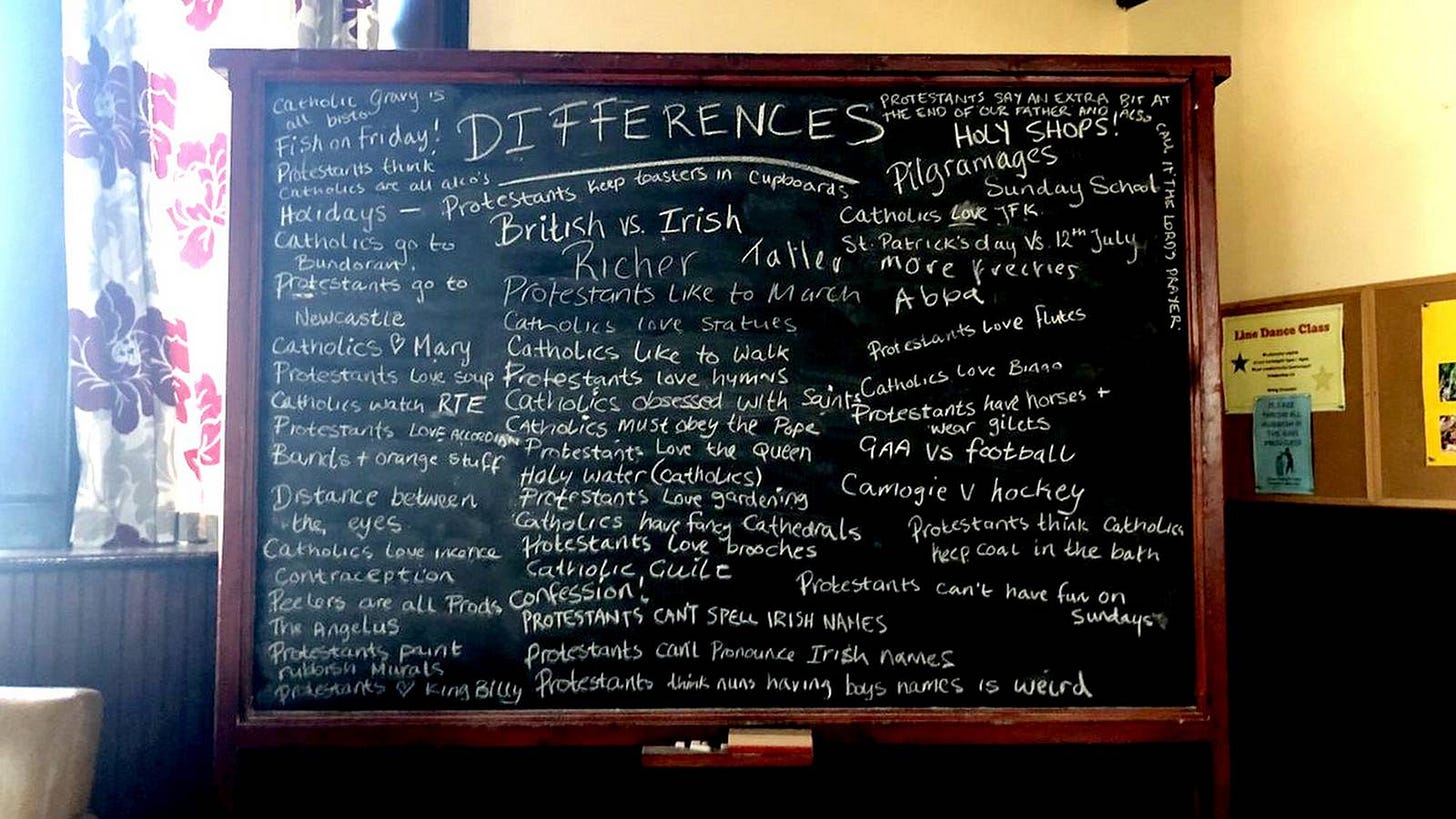 DIFFERENCES
Catholic Gravy is
all bisto
Fish on friday!
Protestants think
Catholics are all alco's
Holidays —
Catholics go to
Bundoran.
Protestants go to
Newcastle
Catholics ♡ Mary
Protestants Love soup
Catholics watch RTE
Protestants LOVE ACCORDIAN
Bands + orange stuff
Distance between
the eyes
Catholics Love incence
Contraception
Peelers are all Prods
The Angelus
Protestants paint
rubbish Murals
Protestants ♡ King Billy
Protestants keep toasters in cupboards
British vs. Irish
Richer Taller
Protestants Like to March
Catholics love statues
Catholics like to walk
Protestants love hymns
Catholics obsessed with saints
Catholics must obey the Pope
Protestants Love the Queen
Holy water (Catholics)
Protestants Love gardening
Catholics have fancy Cathedrals
Protestants Love brooches
Catholic Guilt
Confession!
PROTESTANTS CAN'T SPELL IRISH NAMES
Protestants can't Pronounce Irish names
Protestants think nuns having boys names is weird
PROTESTANTS SAY AN EXTRA BIT AT
THE END OF OUR FATHER AND ALSO
CALL IT THE LORDS PRAYER.
HOLY SHOPS!
Pilgramages
Sunday School
Catholics Love JFK
St. Patrick's day Vs. 12th July
more freckles
Abba
Protestants Love flutes
Catholics Love Bingo
Protestants have horses +
wear gilets
GAA Vs football
Camogie V hockey
Protestants think Catholics
keep coal in the bath
Protestants can't have fun on
Sundays
Line Dance Class